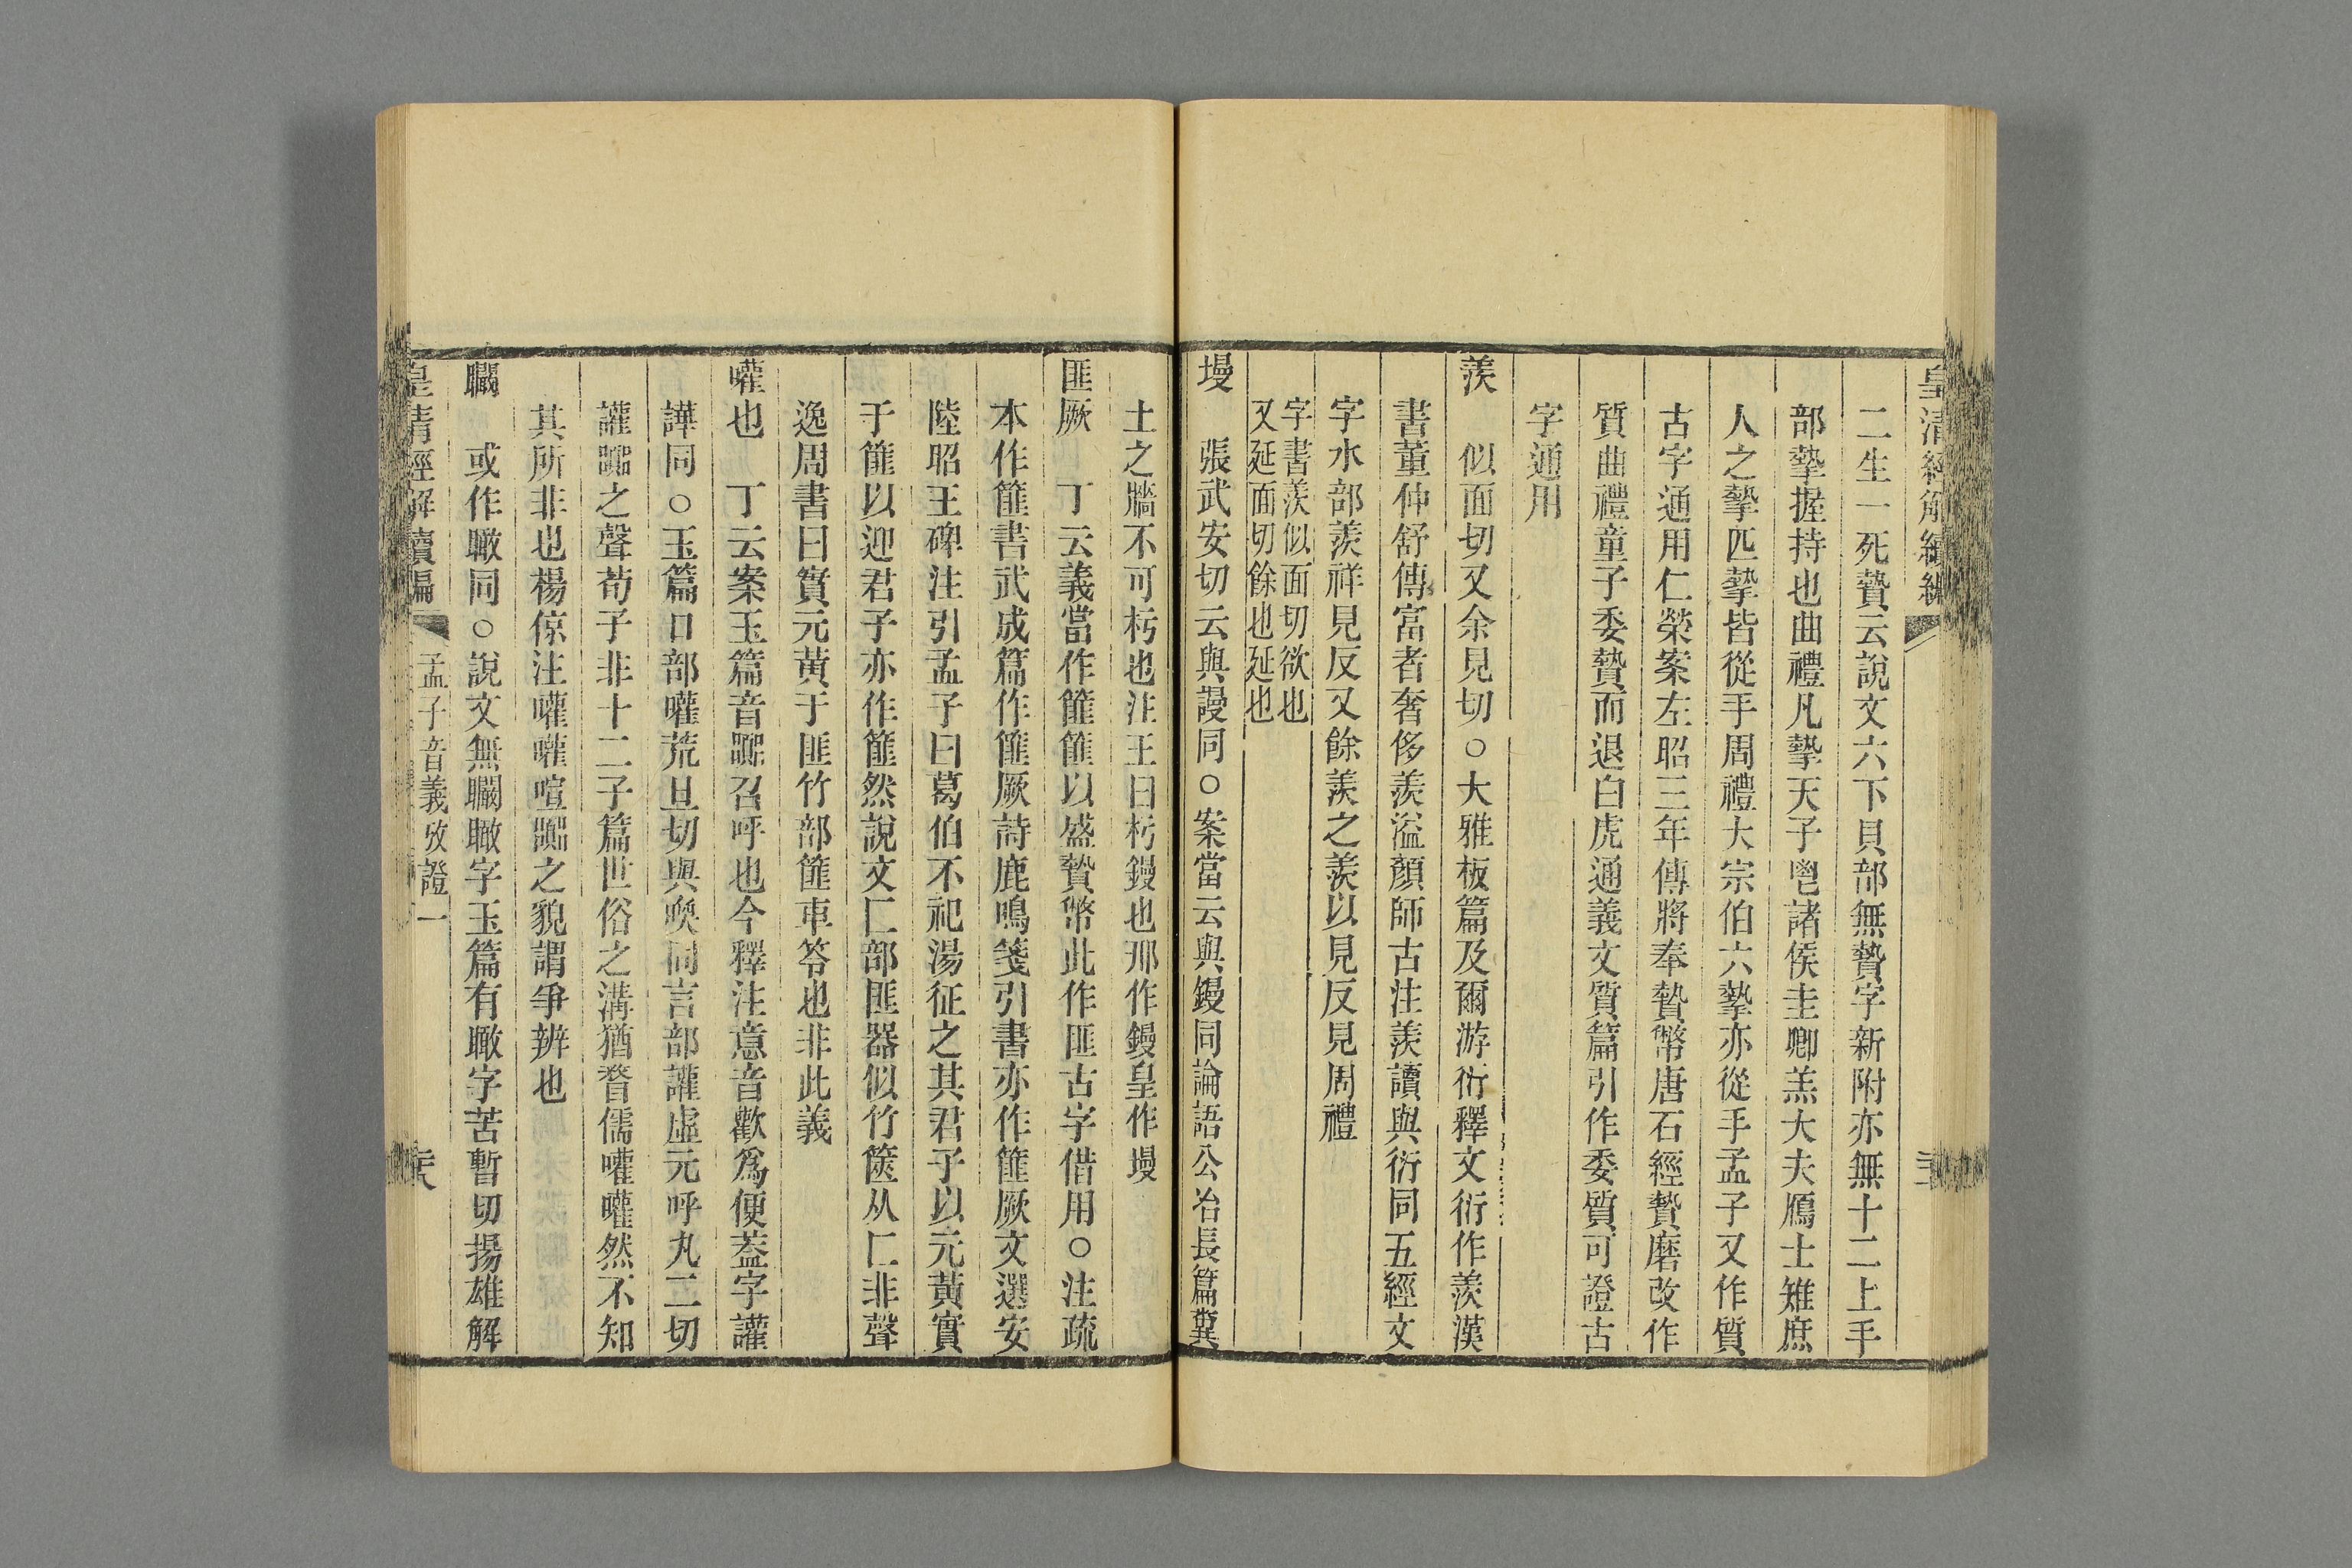 皇清經解續編
二生一死贄云說文六下貝部無贄字新附亦無十二上手
部摯握持也曲禮凡摯天子鬯諸侯圭卿羔大夫鴈士雉庶
人之摯匹摯皆從手周禮大宗伯六摯亦從手孟子又作質
古字通用仁榮案左昭三年傳將奉贄幣唐石經贄磨改作
質曲禮童子委贄而退白虎通義文質篇引作委質可證古
字通用
羨　似面切又余見切○大雅板篇及爾游衍釋文衍作羨漢
書董仲舒傳富者奢侈羨溢顏師古注羨讀與衍同五經文
字水部羨祥見反又餘羨之羨以見反見周禮
字書羨似面切欲也
又延面切餘也延也
墁　張武安切云與謾同○案當云與鏝同論語公冶長篇糞
土之牆不可杇也注王曰杇鏝也邢作鏝皇作墁
匪厥　丁云義當作篚篚以盛贄幣此作匪古字借用○注疏
本作篚書武成篇作篚厥詩鹿鳴箋引書亦作篚厥文選安
陸昭王碑注引孟子曰葛伯不祀湯征之其君子以元黃實
于篚以迎君子亦作篚然說文匚部匪器似竹篋从匚非聲
逸周書曰實元黃于匪竹部篚車笭也非此義
嚾也　丁云案玉篇音嚻召呼也今釋注意音歡爲便葢字讙
譁同○玉篇口部嚾荒旦切與喚同言部讙虛元呼丸二切
讙嚻之聲荀子非十二子篇世俗之溝猶瞀儒嚾嚾然不知
其所非也楊倞注嚾嚾喧嚻之貌謂爭辨也
矙　或作瞰同○說文無矙瞰字玉篇有瞰字苦暫切揚雄解
皇清經解續編　孟子音義攷證一